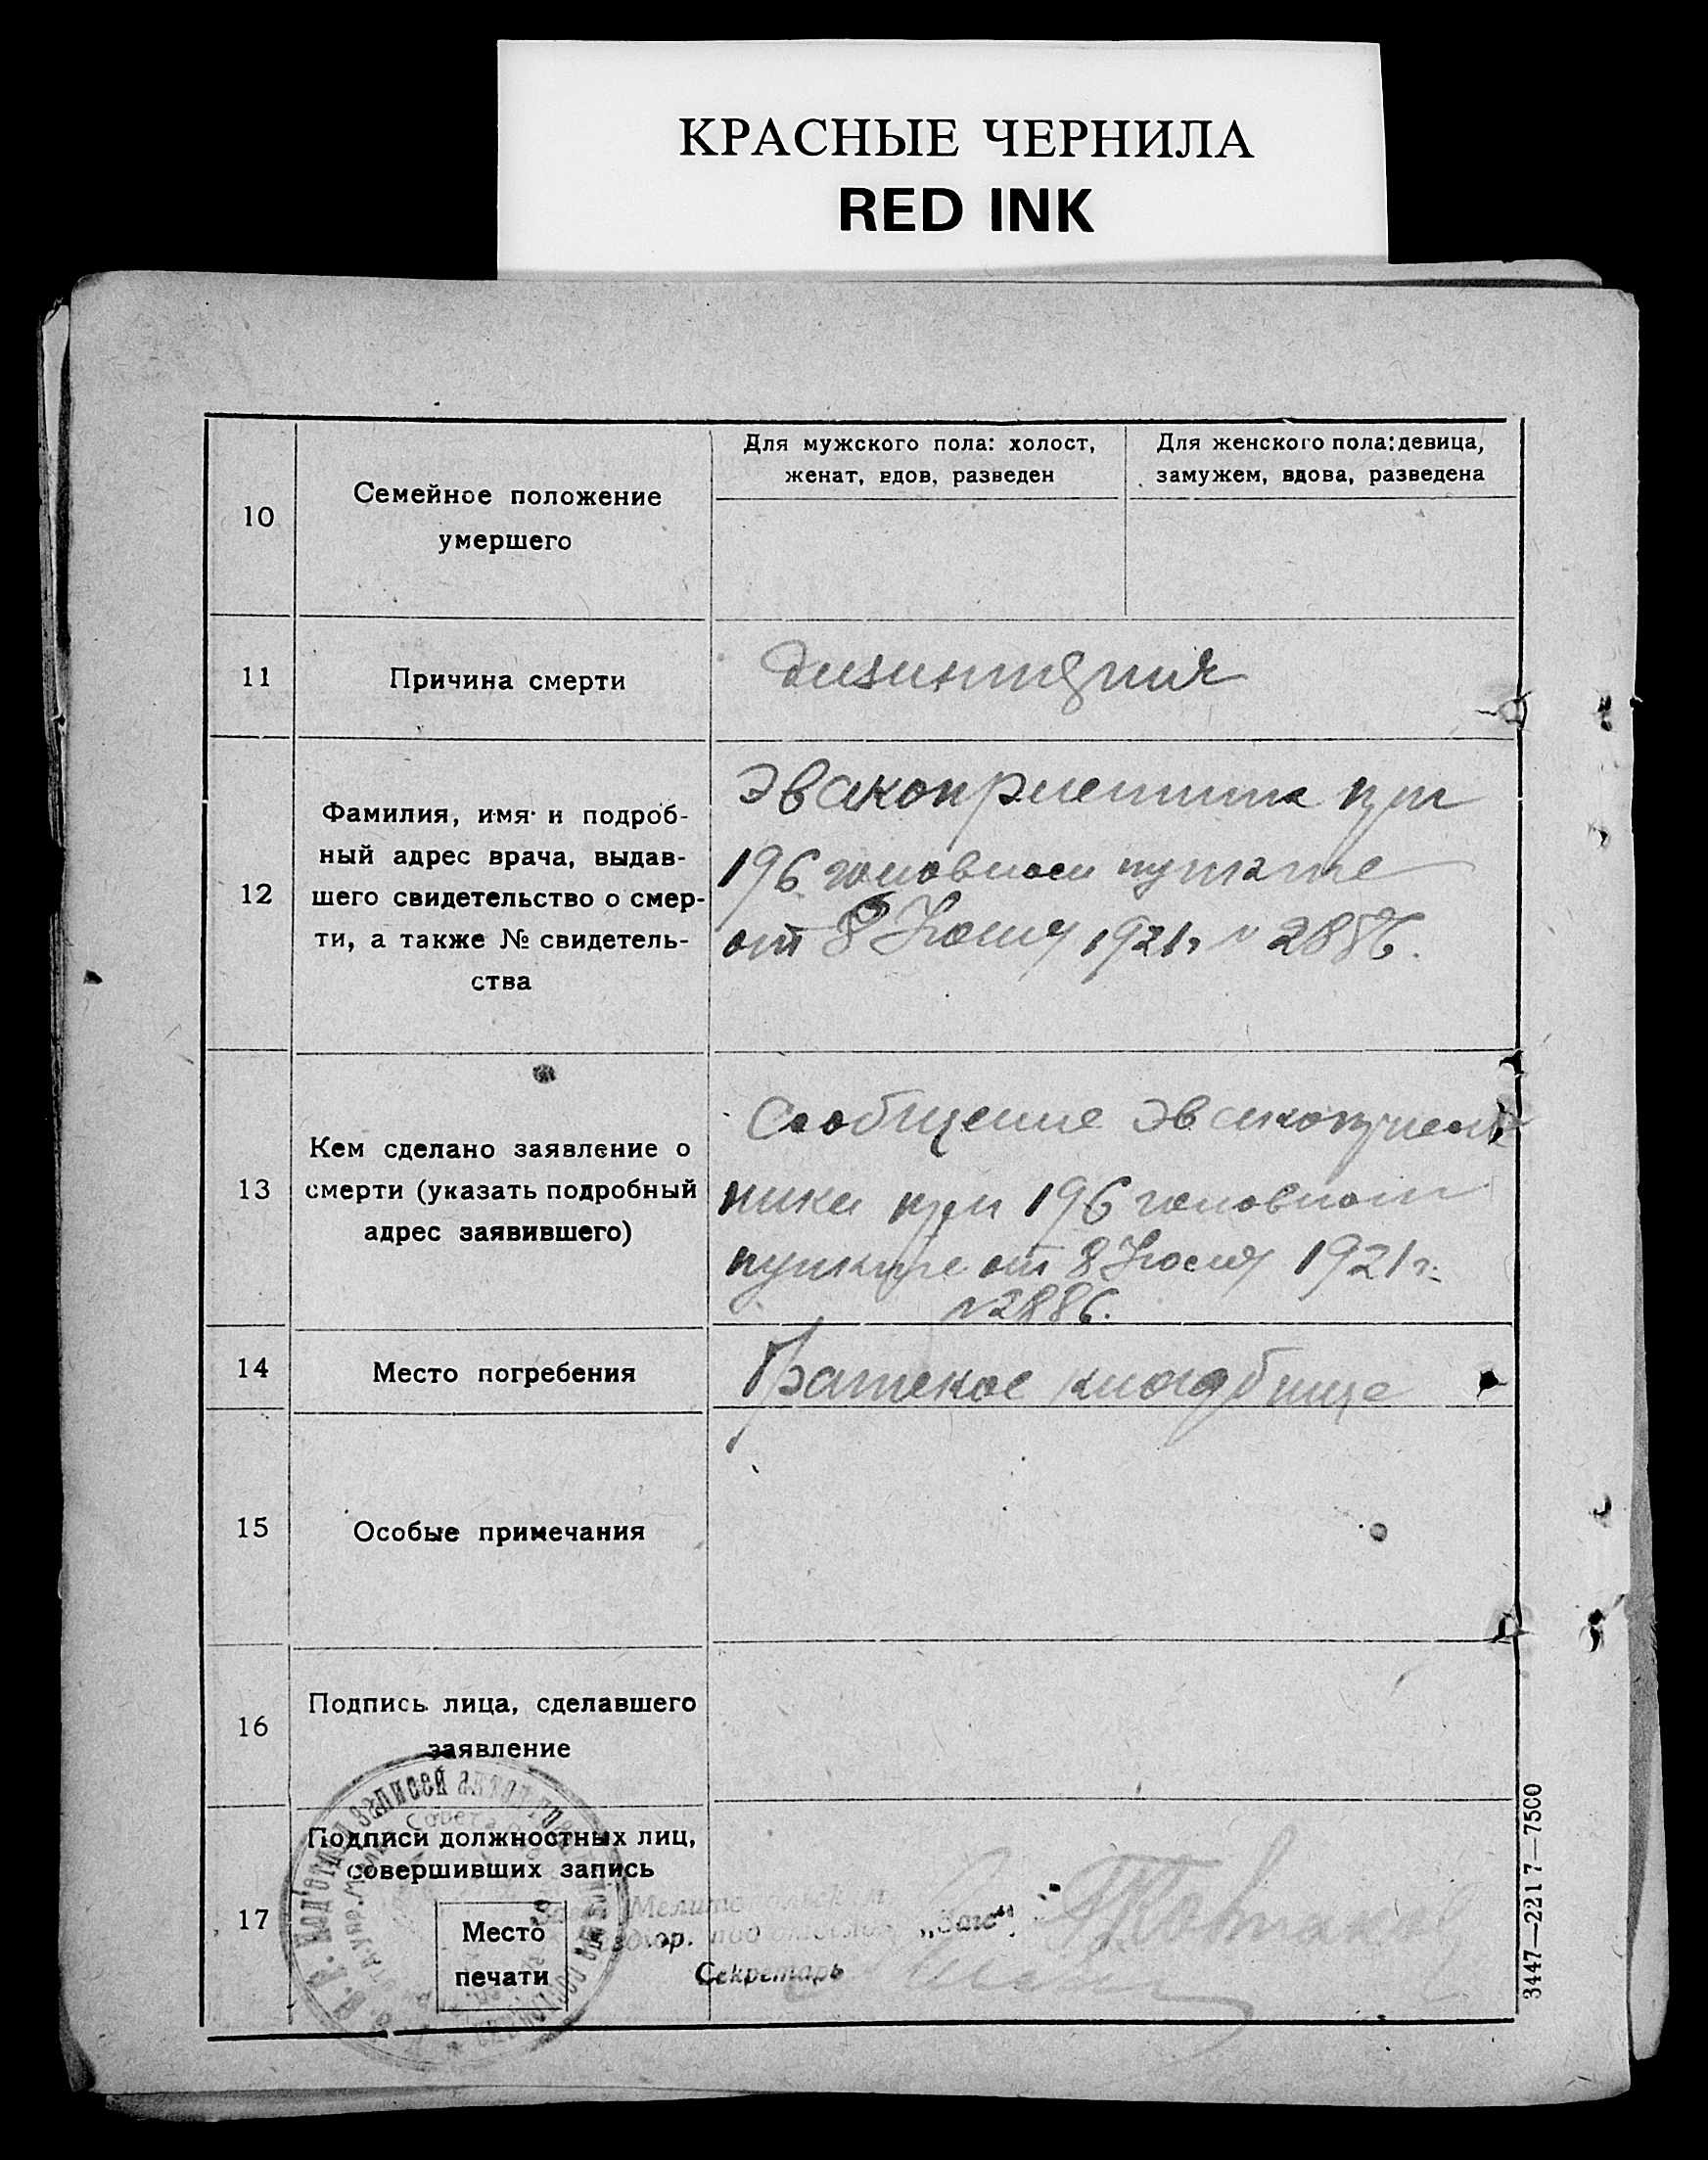 КРАСНЫЕ ЧЕРНИЛА
RED INK
10
Семейное положение
умершего
Для мужского пола: холост,
женат, вдов, разведен
Для женского пола: девица,
замужем, вдова, разведена
11
Причина смерти
дизинтерия
12
Фамилия, имя и подроб-
ный адрес врача, выдав-
шего свидетельство о смер-
ти, а также № свидетель-
ства
Эвакоприемника при
196 головном пункте
от 8 1921 г. № 2886.
13
Кем сделано заявление о
смерти (указать подробный
адрес заявившего)
Сообщение эвакоприем
ника при 196 головном
пункте от 8 1921 г.
№ 2886.
14
Место погребения
Братское кладбище
15
Особые примечания
16
Подпись лица, сделавшего
заявление
17
Подписи должностных лиц,
совершивших запись
Место
печати
„Загс“
Секретарь
3447—2217—7500